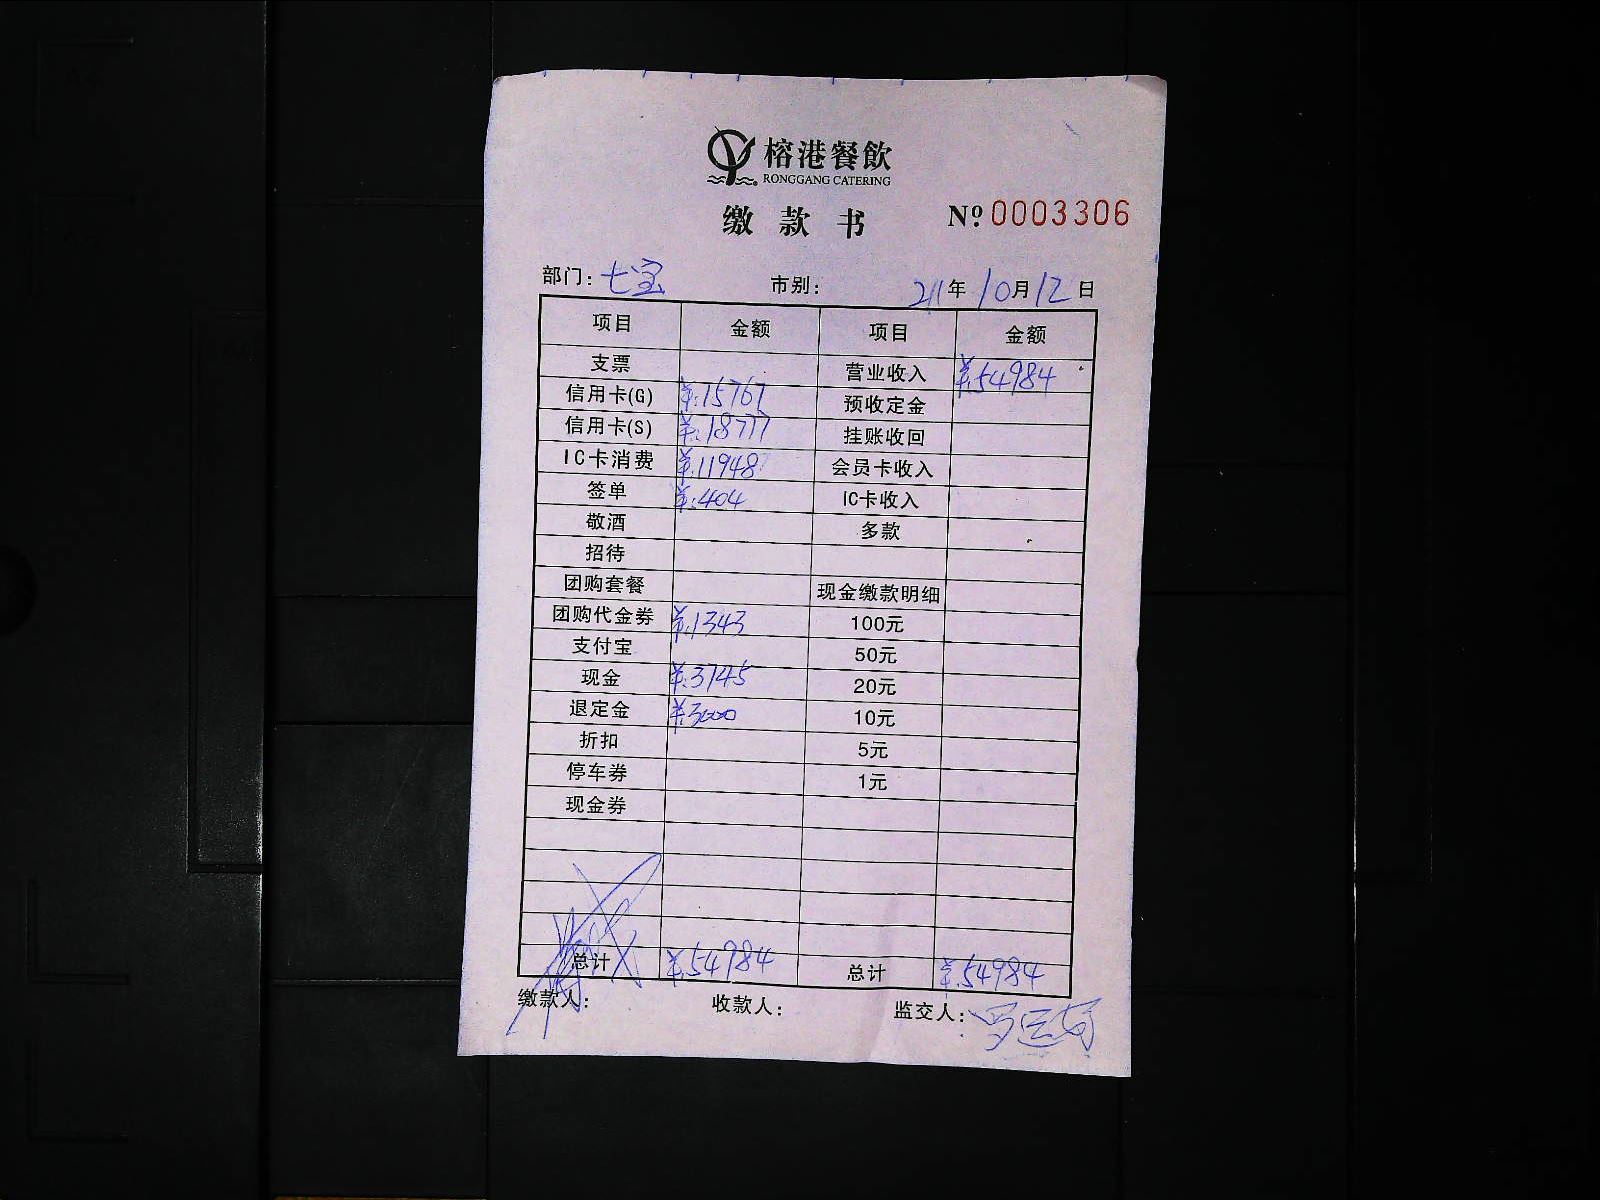 榕港餐飲
RONGGANG CATERING
缴款书 № 0003306
部门: 七宝 市别: 211年 10月 12日
项目 金额 项目 金额
支票 营业收入 ¥:54984
信用卡(G) ¥:15767 预收定金
信用卡(S) ¥:18777 挂账收回
IC卡消费 ¥:11948 会员卡收入
签单 ¥:404 IC卡收入
敬酒 多款
招待
团购套餐 现金缴款明细
团购代金券 ¥:1343 100元
支付宝 50元
现金 ¥:3745 20元
退定金 ¥:3000 10元
折扣 5元
停车券 1元
现金券
总计 ¥:54984 总计 ¥:54984
缴款人: 收款人: 监交人: